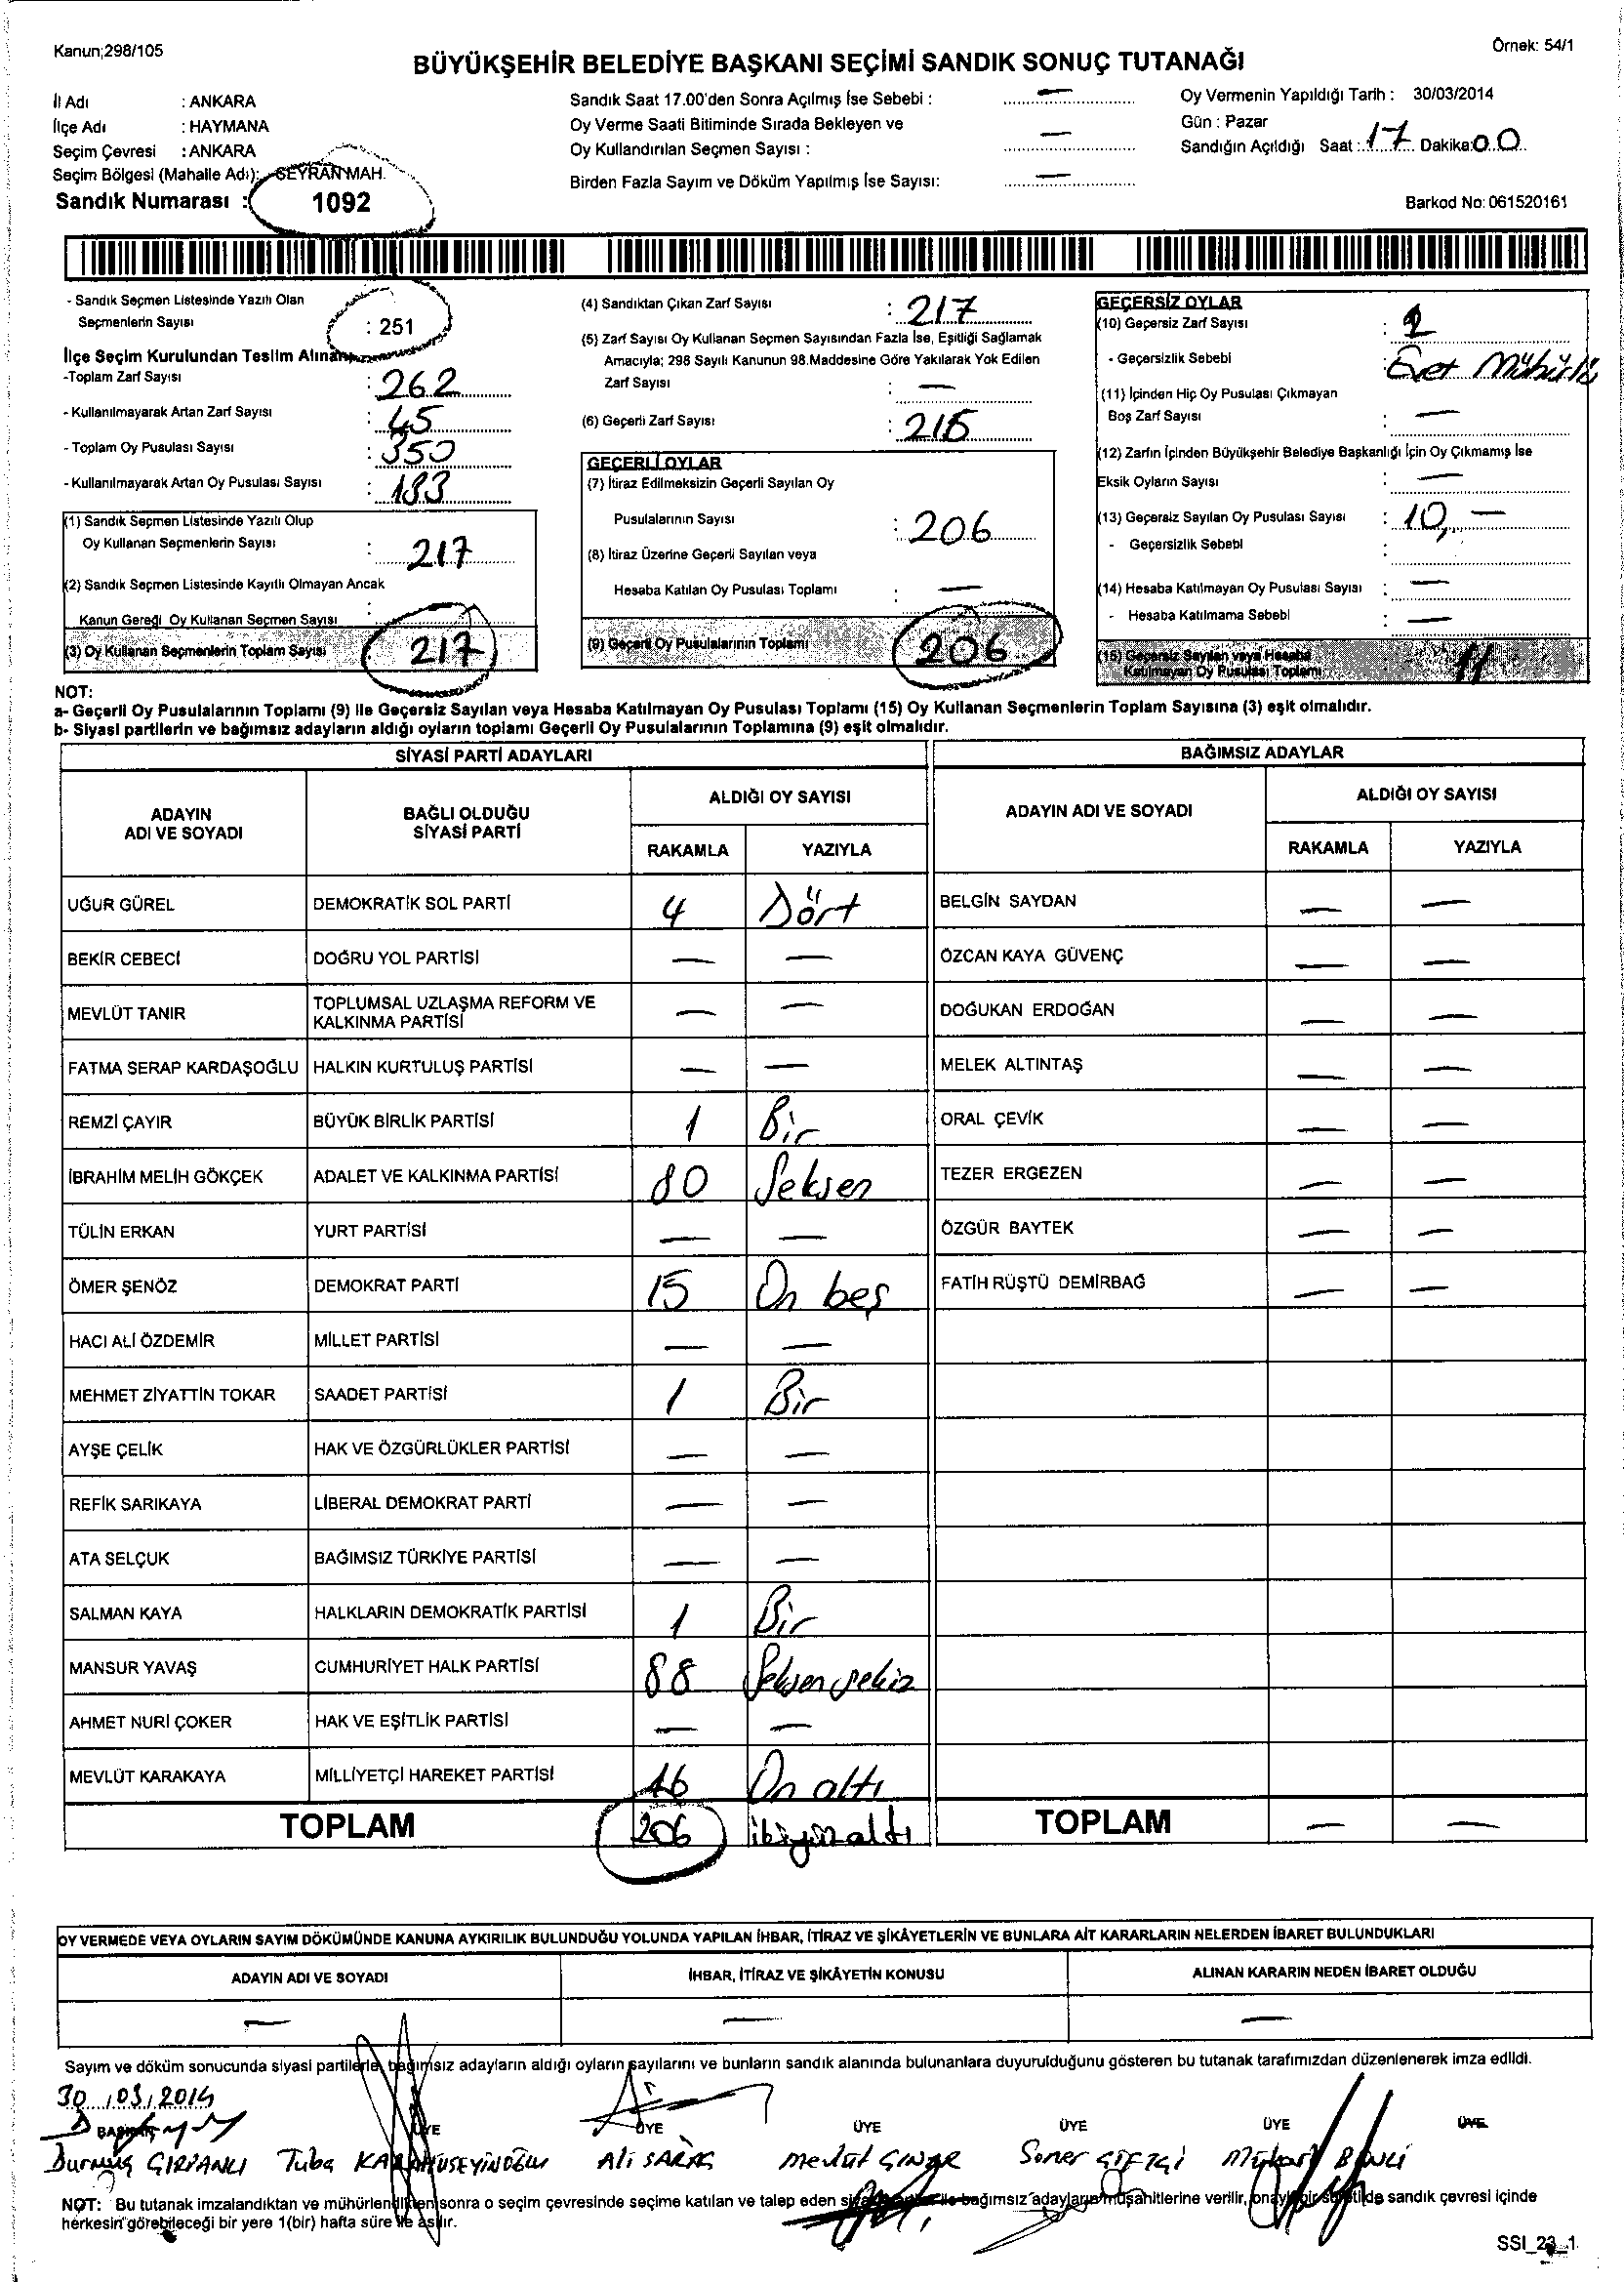 Kanun;298/105
Örnek: 54/1
BÜYÜKŞEHİR BELEDİYE BAŞKANI SEÇİMİ SANDIK SONUÇ TUTANAĞI
İl Adı : ANKARA
İlçe Adı : HAYMANA
Seçim Çevresi : ANKARA
Seçim Bölgesi (Mahalle Adı): SEYRAN MAH.
Sandık Numarası : 1092
Sandık Saat 17.00'den Sonra Açılmış İse Sebebi : —
Oy Verme Saati Bitiminde Sırada Bekleyen ve
Oy Kullandırılan Seçmen Sayısı : —
Birden Fazla Sayım ve Döküm Yapılmış İse Sayısı: —
Oy Vermenin Yapıldığı Tarih : 30/03/2014
Gün : Pazar
Sandığın Açıldığı Saat : 17 Dakika: 00
Barkod No: 061520161
- Sandık Seçmen Listesinde Yazılı Olan
Seçmenlerin Sayısı : 251
İlçe Seçim Kurulundan Teslim Alınan
-Toplam Zarf Sayısı : 262
- Kullanılmayarak Artan Zarf Sayısı : 45
- Toplam Oy Pusulası Sayısı : 350
- Kullanılmayarak Artan Oy Pusulası Sayısı : 133
(1) Sandık Seçmen Listesinde Yazılı Olup
Oy Kullanan Seçmenlerin Sayısı : 217
(2) Sandık Seçmen Listesinde Kayıtlı Olmayan Ancak
Kanun Gereği Oy Kullanan Seçmen Sayısı :
(3) Oy Kullanan Seçmenlerin Toplam Sayısı 217
(4) Sandıktan Çıkan Zarf Sayısı : 217
(5) Zarf Sayısı Oy Kullanan Seçmen Sayısından Fazla İse, Eşitliği Sağlamak
Amacıyla; 298 Sayılı Kanunun 98.Maddesine Göre Yakılarak Yok Edilen
Zarf Sayısı : —
(6) Geçerli Zarf Sayısı :
GEÇERLİ OYLAR
(7) İtiraz Edilmeksizin Geçerli Sayılan Oy
Pusulalarının Sayısı : 206
(8) İtiraz Üzerine Geçerli Sayılan veya
Hesaba Katılan Oy Pusulası Toplamı : —
(9) Geçerli Oy Pusulalarının Toplamı 206
GEÇERSİZ OYLAR
(10) Geçersiz Zarf Sayısı :
- Geçersizlik Sebebi : Evet Mühürlü
(11) İçinden Hiç Oy Pusulası Çıkmayan
Boş Zarf Sayısı : —
(12) Zarfın İçinden Büyükşehir Belediye Başkanlığı İçin Oy Çıkmamış İse
Eksik Oyların Sayısı : —
(13) Geçersiz Sayılan Oy Pusulası Sayısı : 10,—
- Geçersizlik Sebebi :
(14) Hesaba Katılmayan Oy Pusulası Sayısı : —
- Hesaba Katılmama Sebebi : —
(15) Geçersiz Sayılan veya Hesaba
Katılmayan Oy Pusulası Toplamı : 11
NOT:
a- Geçerli Oy Pusulalarının Toplamı (9) ile Geçersiz Sayılan veya Hesaba Katılmayan Oy Pusulası Toplamı (15) Oy Kullanan Seçmenlerin Toplam Sayısına (3) eşit olmalıdır.
b- Siyasi partilerin ve bağımsız adayların aldığı oyların toplamı Geçerli Oy Pusulalarının Toplamına (9) eşit olmalıdır.
SİYASİ PARTİ ADAYLARI
ADAYIN ADI VE SOYADI
BAĞLI OLDUĞU SİYASİ PARTİ
ALDIĞI OY SAYISI
RAKAMLA YAZIYLA
UĞUR GÜREL DEMOKRATİK SOL PARTİ 4 Dört
BEKİR CEBECİ DOĞRU YOL PARTİSİ — —
MEVLÜT TANIR TOPLUMSAL UZLAŞMA REFORM VE KALKINMA PARTİSİ — —
FATMA SERAP KARDAŞOĞLU HALKIN KURTULUŞ PARTİSİ — —
REMZİ ÇAYIR BÜYÜK BİRLİK PARTİSİ 1 Bir
İBRAHİM MELİH GÖKÇEK ADALET VE KALKINMA PARTİSİ 80 Seksen
TÜLİN ERKAN YURT PARTİSİ — —
ÖMER ŞENÖZ DEMOKRAT PARTİ 15 On beş
HACI ALİ ÖZDEMİR MİLLET PARTİSİ — —
MEHMET ZİYATTİN TOKAR SAADET PARTİSİ 1 Bir
AYŞE ÇELİK HAK VE ÖZGÜRLÜKLER PARTİSİ — —
REFİK SARIKAYA LİBERAL DEMOKRAT PARTİ — —
ATA SELÇUK BAĞIMSIZ TÜRKİYE PARTİSİ — —
SALMAN KAYA HALKLARIN DEMOKRATİK PARTİSİ 1 Bir
MANSUR YAVAŞ CUMHURİYET HALK PARTİSİ 88 Seksen sekiz
AHMET NURİ ÇOKER HAK VE EŞİTLİK PARTİSİ — —
MEVLÜT KARAKAYA MİLLİYETÇİ HAREKET PARTİSİ 16 On altı
TOPLAM 206 ikiyüzaltı
BAĞIMSIZ ADAYLAR
ADAYIN ADI VE SOYADI
ALDIĞI OY SAYISI
RAKAMLA YAZIYLA
BELGİN SAYDAN — —
ÖZCAN KAYA GÜVENÇ — —
DOĞUKAN ERDOĞAN — —
MELEK ALTINTAŞ — —
ORAL ÇEVİK — —
TEZER ERGEZEN — —
ÖZGÜR BAYTEK — —
FATİH RÜŞTÜ DEMİRBAĞ — —
TOPLAM — —
OY VERMEDE VEYA OYLARIN SAYIM DÖKÜMÜNDE KANUNA AYKIRILIK BULUNDUĞU YOLUNDA YAPILAN İHBAR, İTİRAZ VE ŞİKÂYETLERİN VE BUNLARA AİT KARARLARIN NELERDEN İBARET BULUNDUKLARI
ADAYIN ADI VE SOYADI İHBAR, İTİRAZ VE ŞİKÂYETİN KONUSU ALINAN KARARIN NEDEN İBARET OLDUĞU
— — —
Sayım ve döküm sonucunda siyasi partilerle, bağımsız adayların aldığı oyların sayılarını ve bunların sandık alanında bulunanlara duyurulduğunu gösteren bu tutanak tarafımızdan düzenlenerek imza edildi.
30/03/2014
BAŞKAN ÜYE ÜYE ÜYE ÜYE ÜYE ÜYE
Durmuş Tuba KARAHÜSEYİNOĞLU Ali Mevlüt ÇINAR Soner ÇİFTÇİ
NOT: Bu tutanak imzalandıktan ve mühürlendikten sonra o seçim çevresinde seçime katılan ve talep eden siyasi partiler ile bağımsız adayların müşahitlerine verilir, onaylı bir sureti de sandık çevresi içinde
herkesin görebileceği bir yere 1(bir) hafta süre ile asılır.
SSI_23_1